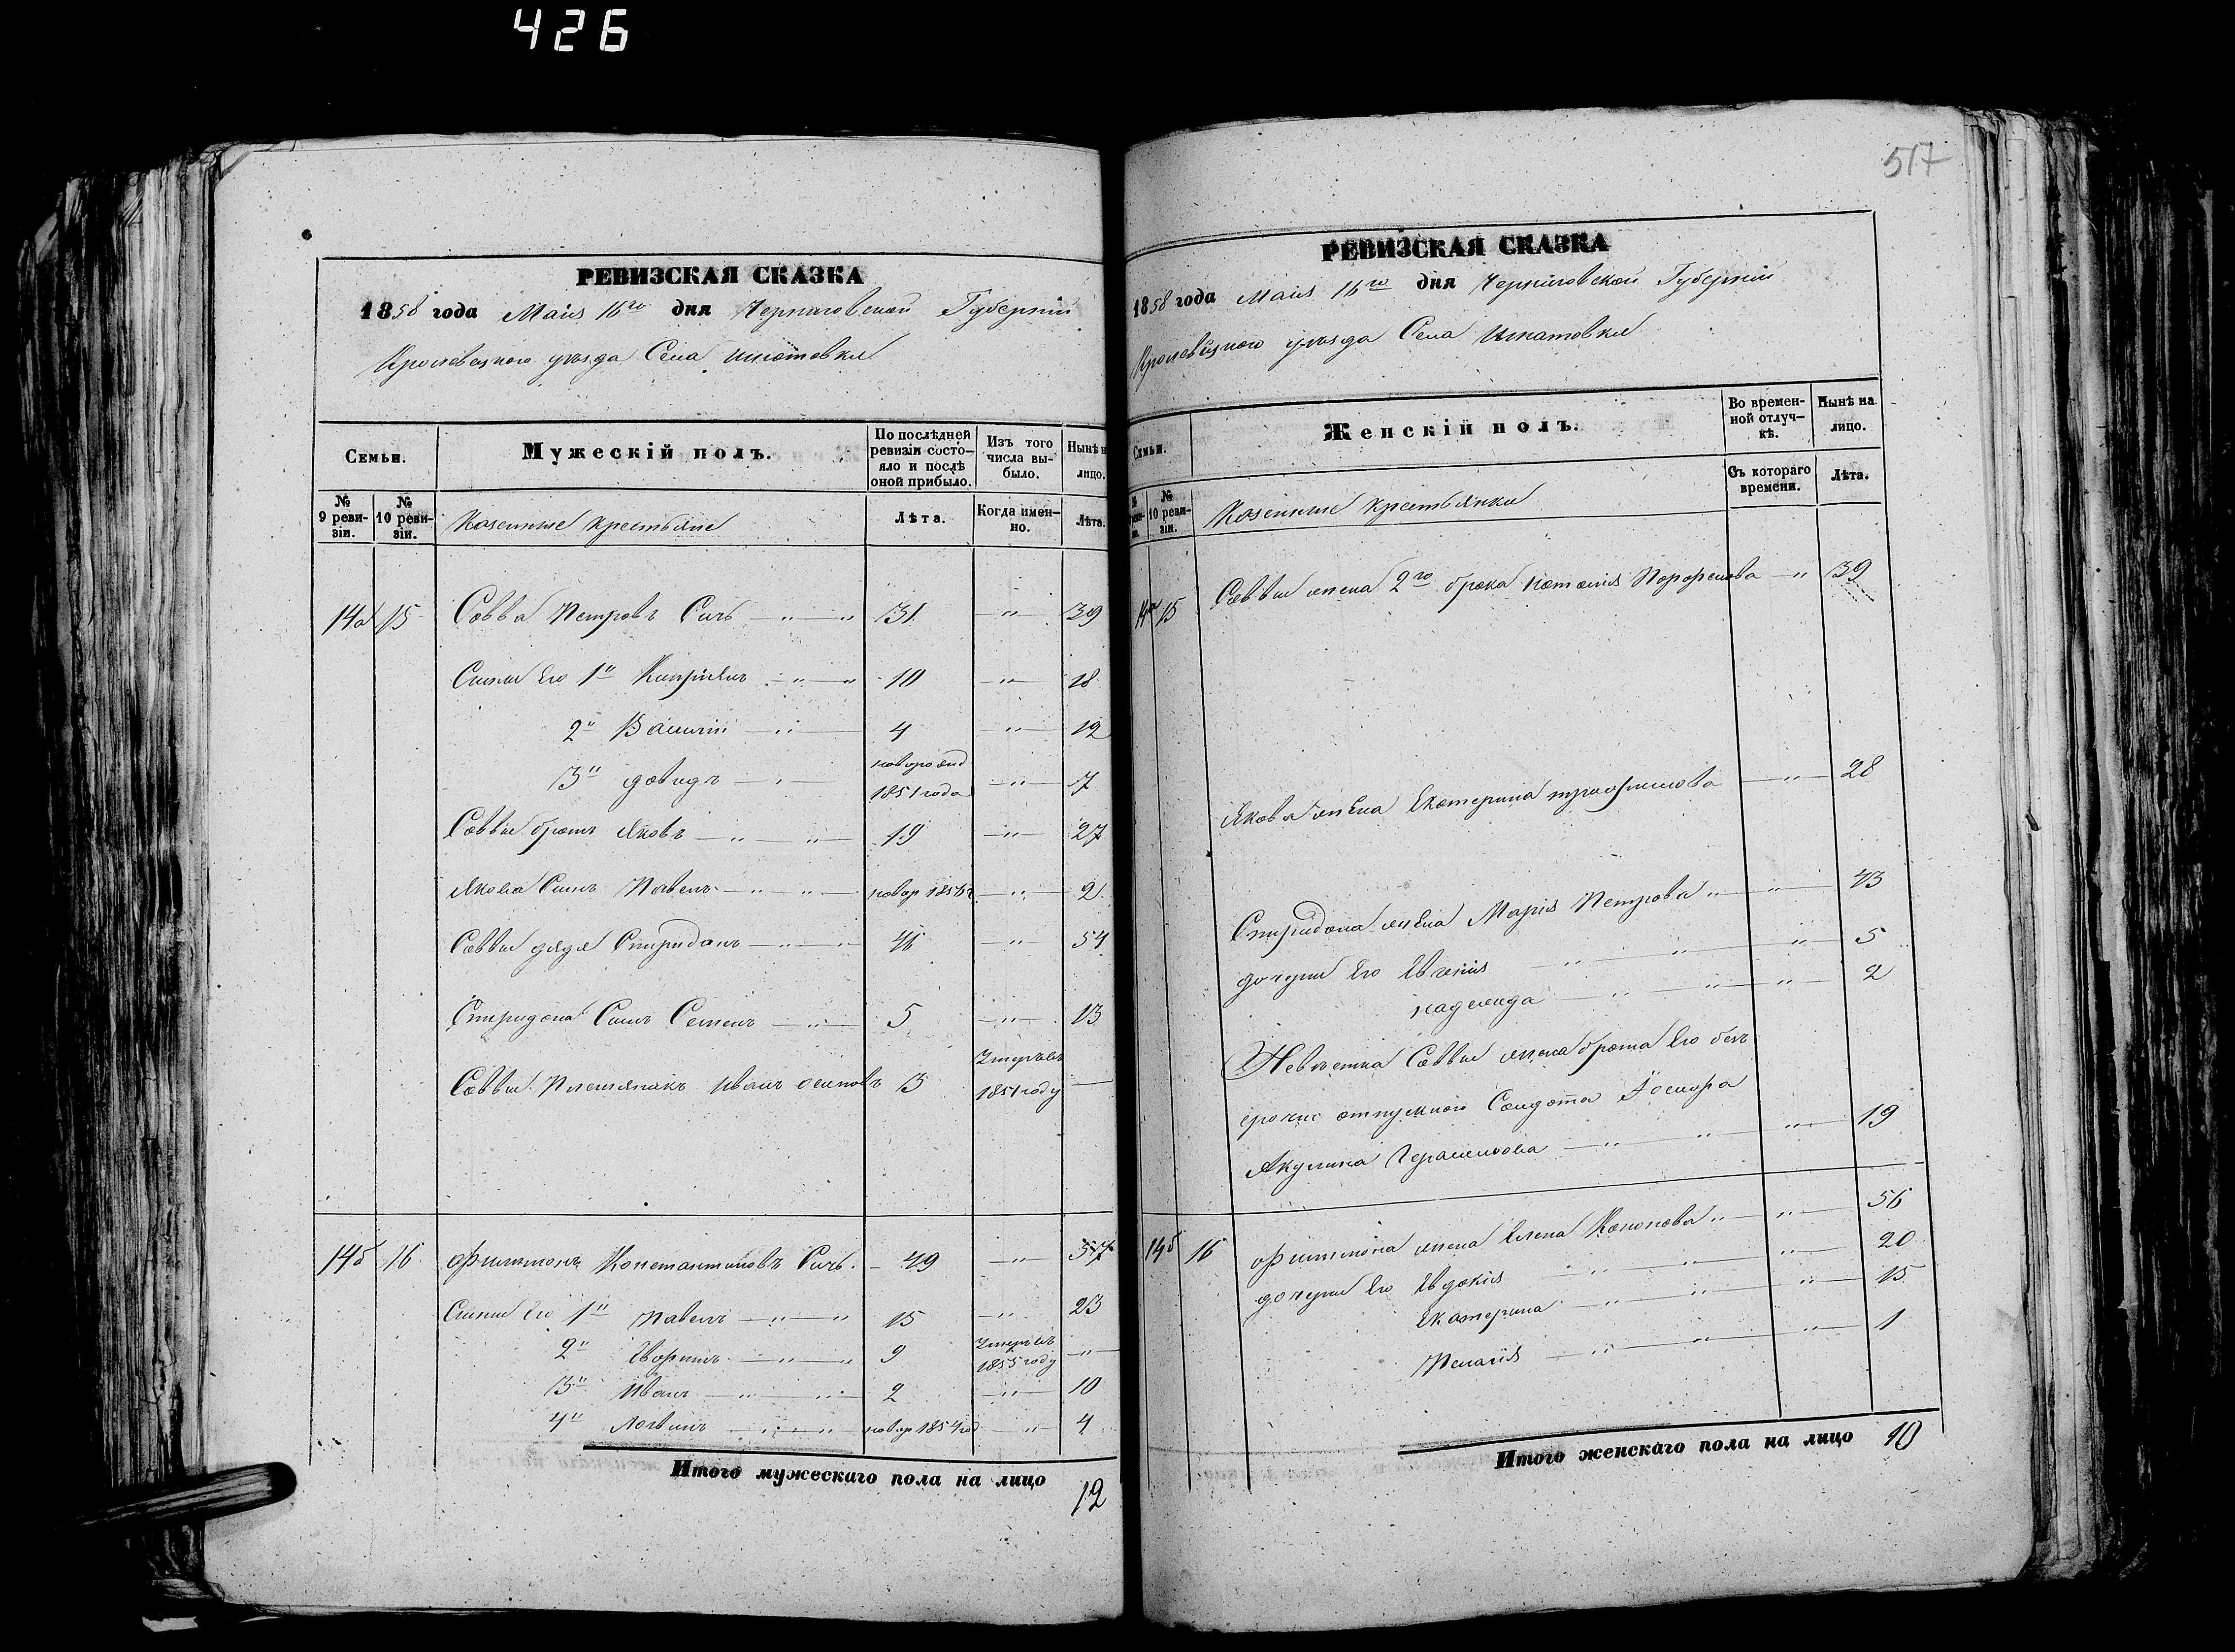 426
517
РЕВИЗСКАЯ СКАЗКА
1858 года Маія 16го дня Черниговской Губерніи
Кролевецкого уезда Села Игнатовки
Семьи.
Мужескій полъ.
По послѣдней ревизіи состояло и послѣ оной прибыло.
Изъ того числа выбыло.
Нынѣ н лицо.
№ 9 ревизіи.
№ 10 ревизіи.
Казенные крестьяне
Лѣта.
Когда именно.
Лѣта.
14а 15 Савва Петровъ Сичь — " — " 31 — " — 39
Сыны Его 1й Кипріянъ — " — " 10 — " — 18
2й Василій — " — 4 — " — 12
3й давидъ — " — новорожд 1851 года — " — 7
Саввы братъ Яковъ — " — " — 19 — " — 27
Якова Сынъ Павелъ — " — " — новор 1856г — " — 2
Саввы дядя Спиридонъ — " — " 46 — " — 54
Спиридона Сынъ Семенъ — " — 5 — " — 13
Саввы Племяникъ Иванъ осиповъ 3 Умеръ въ 1851 году —
14б 16 Филимонъ Константиновъ Сичь — 49 — " — 57
Сыны Его 1й Павелъ — " — " 15 — " — 23
2й Ефримъ — " — " 9 Умеръ въ 1855 году — " —
3й Иванъ — " — " — 2 — " — 10
4й Логвинъ — " — " новор 1854 год — " — 4
Итого мужескаго пола на лицо
12
РЕВИЗСКАЯ СКАЗКА
1858 года Маія 16го дня Черниговской Губерніи
Кролевецкого уезда Села Игнатовки
Семьи.
Женскій полъ.
Во временной отлучкѣ.
Нынѣ на лицо.
№ 10 ревизіи.
Казенные крестьянки
Съ котораго времени.
Лѣта.
14а 15 Саввы жена 2го брака Наталія Порфенова — " 39
Якова жена Екатерина трофимова — " — 28
Спиридона жена Марія Петрова " — " — 43
дочери Его Евгенія — " — " — " — 5
надежда — " — " — " — 2
Невѣстка Саввы жена брата Его без
срочно отпускного Солдата
Акулина Герасимова — " — " — " — 19
14б 16 Филимона жена Елена Кононова " — " — 56
дочери Его Евдокія — " — " — " — 20
Екатерина — " — " — " — 15
Пелагія — " — " — " — 1
Итого женскаго пола на лицо 10